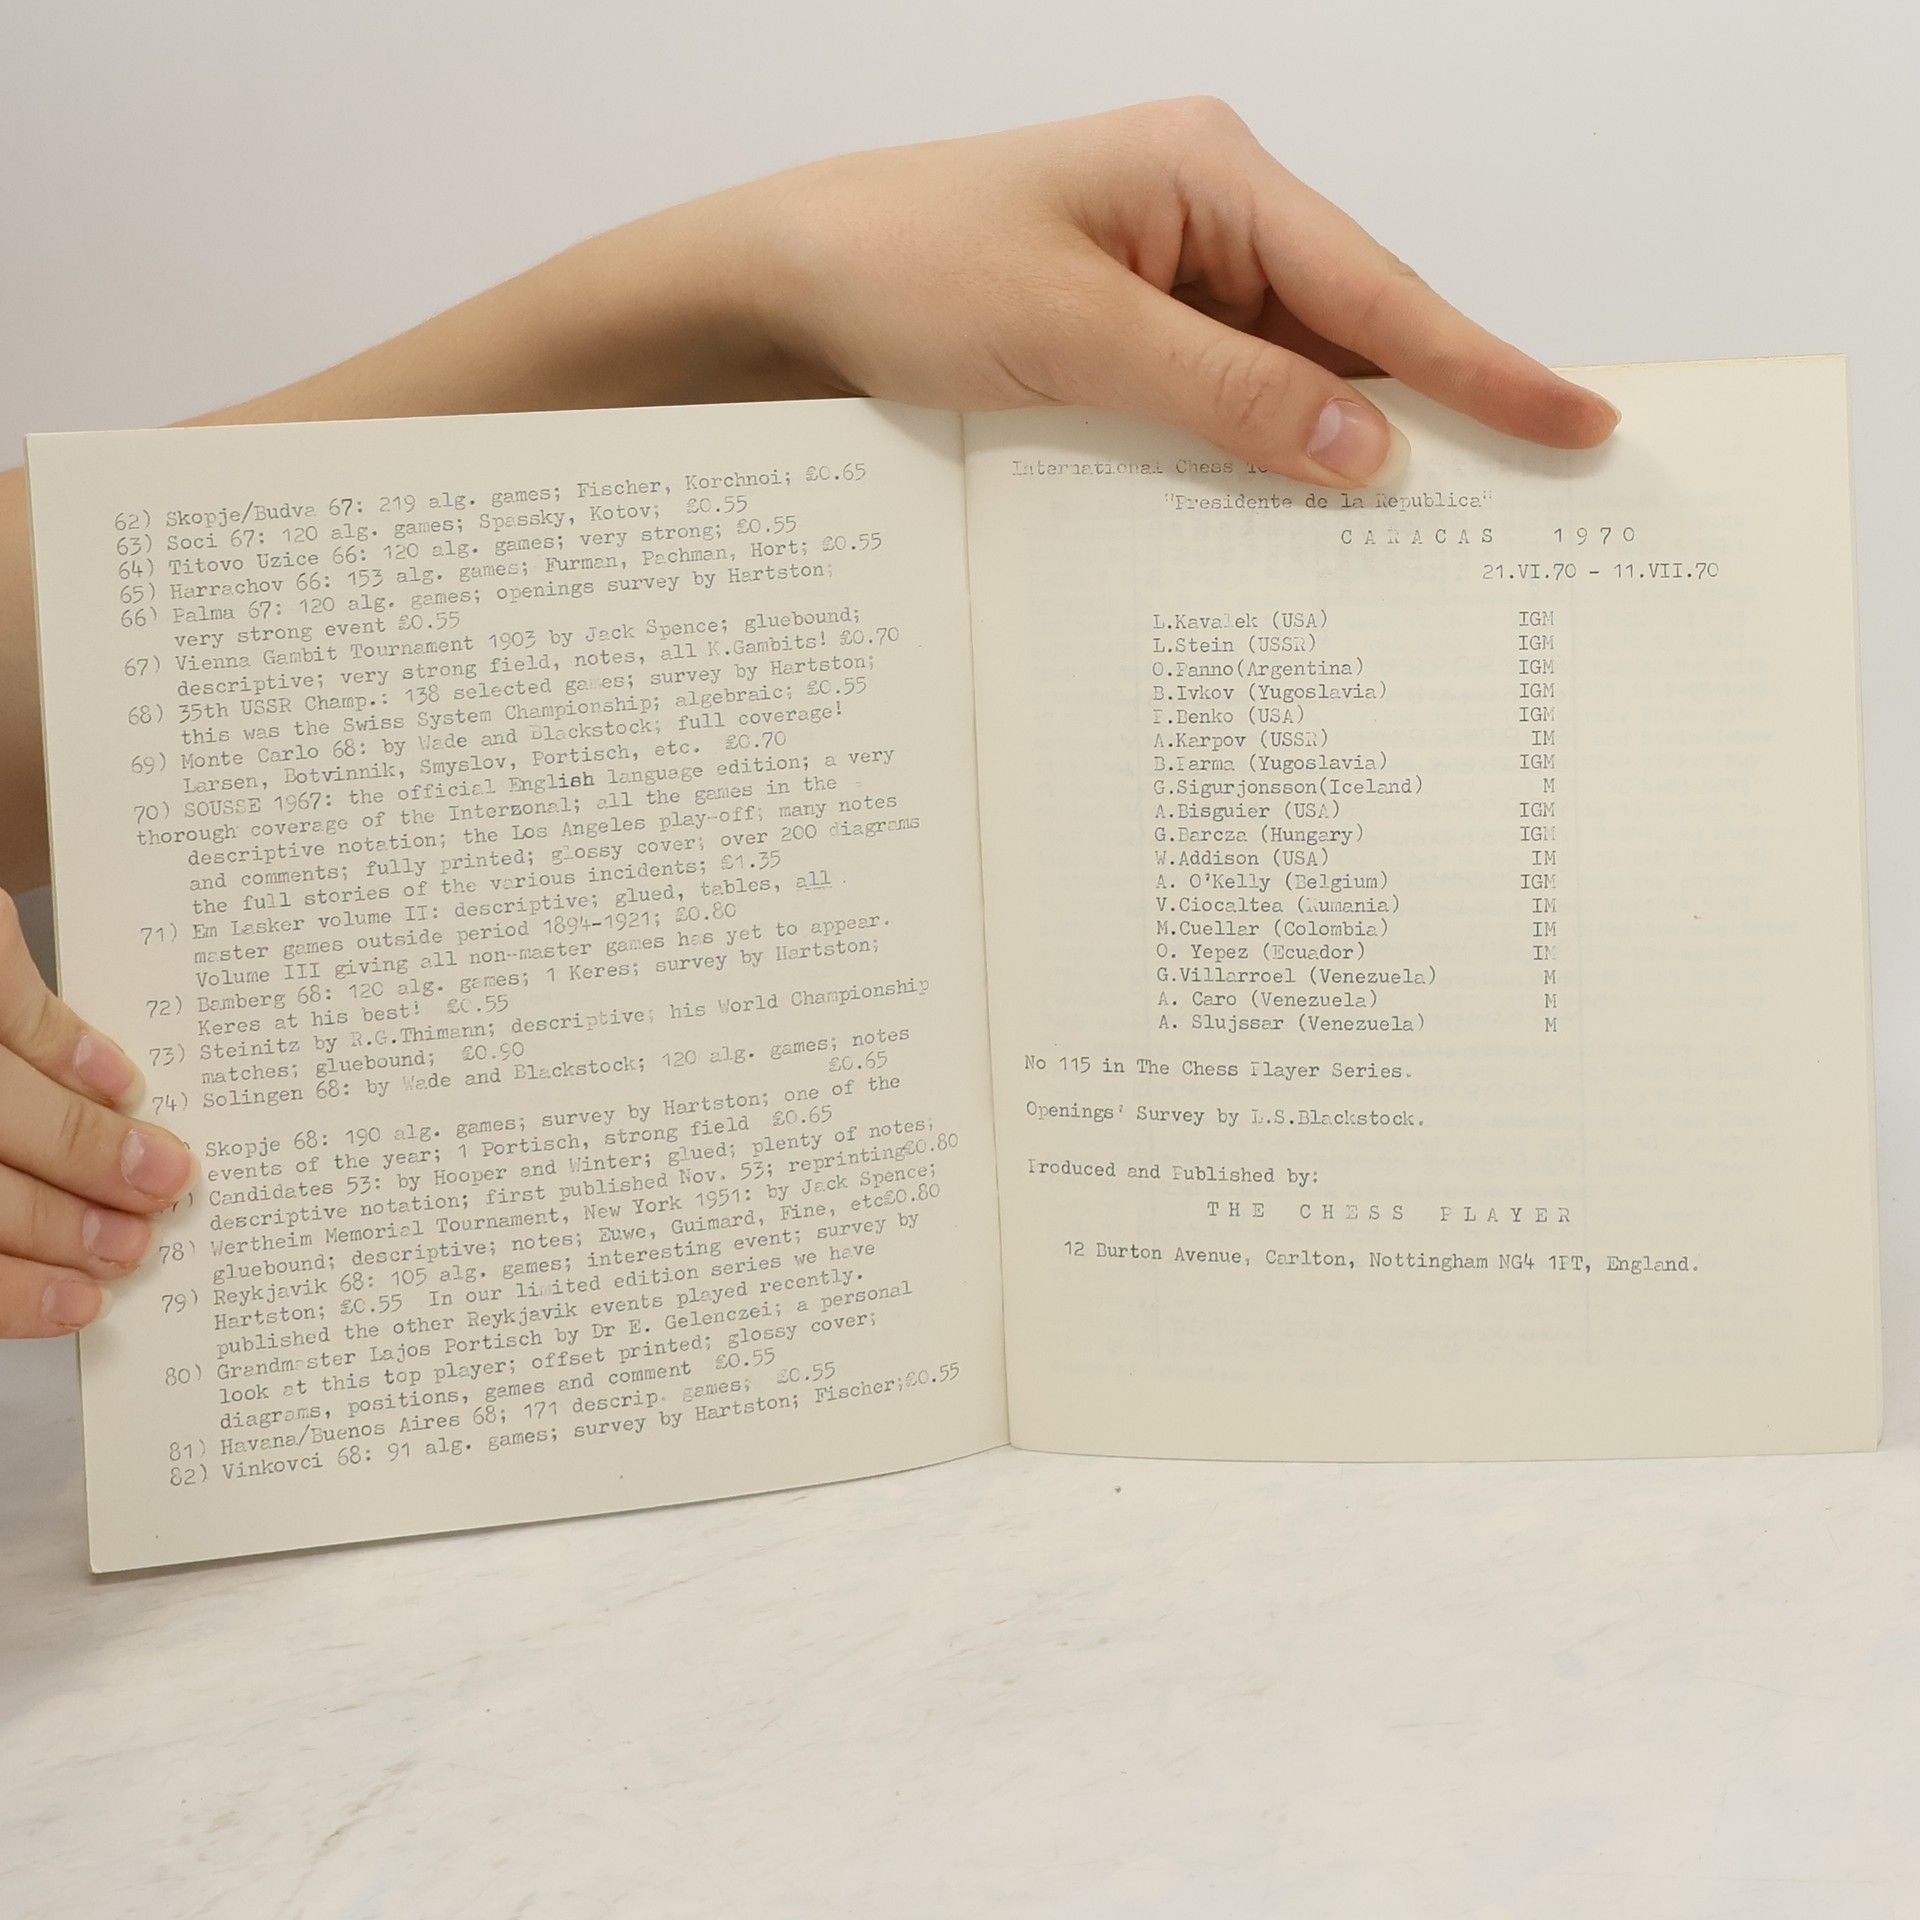 62) Skopje/Budva 67: 219 alg. games; Fischer, Korchnoi; £0.65
63) Soci 67: 120 alg. games; Spassky, Kotov; £0.55
64) Titovo Uzice 66: 120 alg. games; very strong; £0.55
65) Harrachov 66: 153 alg. games; Furman, Pachman, Hort; £0.55
66) Palma 67: 120 alg. games; openings survey by Hartston;
very strong event £0.55
67) Vienna Gambit Tournament 1903 by Jack Spence; gluebound;
descriptive; very strong field, notes, all K.Gambits! £0.70
68) 35th USSR Champ.: 138 selected games; survey by Hartston;
this was the Swiss System Championship; algebraic; £0.55
69) Monte Carlo 68: by Wade and Blackstock; full coverage!
Larsen, Botvinnik, Smyslov, Portisch, etc. £0.70
70) SOUSSE 1967: the official English language edition; a very
thorough coverage of the Interzonal; all the games in the
descriptive notation; the Los Angeles play-off; many notes
and comments; fully printed; glossy cover; over 200 diagrams
the full stories of the various incidents; £1.35
71) Em Lasker volume II: descriptive; glued, tables, all
master games outside period 1894-1921; £0.80
Volume III giving all non-master games has yet to appear.
72) Bamberg 68: 120 alg. games; 1 Keres; survey by Hartston;
Keres at his best! £0.55
73) Steinitz by R.G.Thimann; descriptive; his World Championship
matches; gluebound; £0.90
74) Solingen 68: by Wade and Blackstock; 120 alg. games; notes
£0.65
) Skopje 68: 190 alg. games; survey by Hartston; one of the
events of the year; 1 Portisch, strong field £0.65
7) Candidates 53: by Hooper and Winter; glued; plenty of notes;
descriptive notation; first published Nov. 53; reprinting£0.80
78) Wertheim Memorial Tournament, New York 1951: by Jack Spence;
gluebound; descriptive; notes; Euwe, Guimard, Fine, etc£0.80
79) Reykjavik 68: 105 alg. games; interesting event; survey by
Hartston; £0.55 In our limited edition series we have
published the other Reykjavik events played recently.
80) Grandmaster Lajos Portisch by Dr E. Gelenczei; a personal
look at this top player; offset printed; glossy cover;
diagrams, positions, games and comment £0.55
81) Havana/Buenos Aires 68; 171 descrip. games; £0.55
82) Vinkovci 68: 91 alg. games; survey by Hartston; Fischer;£0.55
International Chess
"Presidente de la Republica"
CARACAS 1970
21.VI.70 - 11.VII.70
L.Kavalek (USA) IGM
L.Stein (USSR) IGM
O.Panno(Argentina) IGM
B.Ivkov (Yugoslavia) IGM
P.Benko (USA) IGM
A.Karpov (USSR) IM
B.Parma (Yugoslavia) IGM
G.Sigurjonsson(Iceland) M
A.Bisguier (USA) IGM
G.Barcza (Hungary) IGM
W.Addison (USA) IM
A. O'Kelly (Belgium) IGM
V.Ciocaltea (Rumania) IM
M.Cuellar (Colombia) IM
O. Yepez (Ecuador) IM
G.Villarroel (Venezuela) M
A. Caro (Venezuela) M
A. Slujssar (Venezuela) M
No 115 in The Chess Player Series.
Openings' Survey by L.S.Blackstock.
Produced and Published by:
THE CHESS PLAYER
12 Burton Avenue, Carlton, Nottingham NG4 1PT, England.